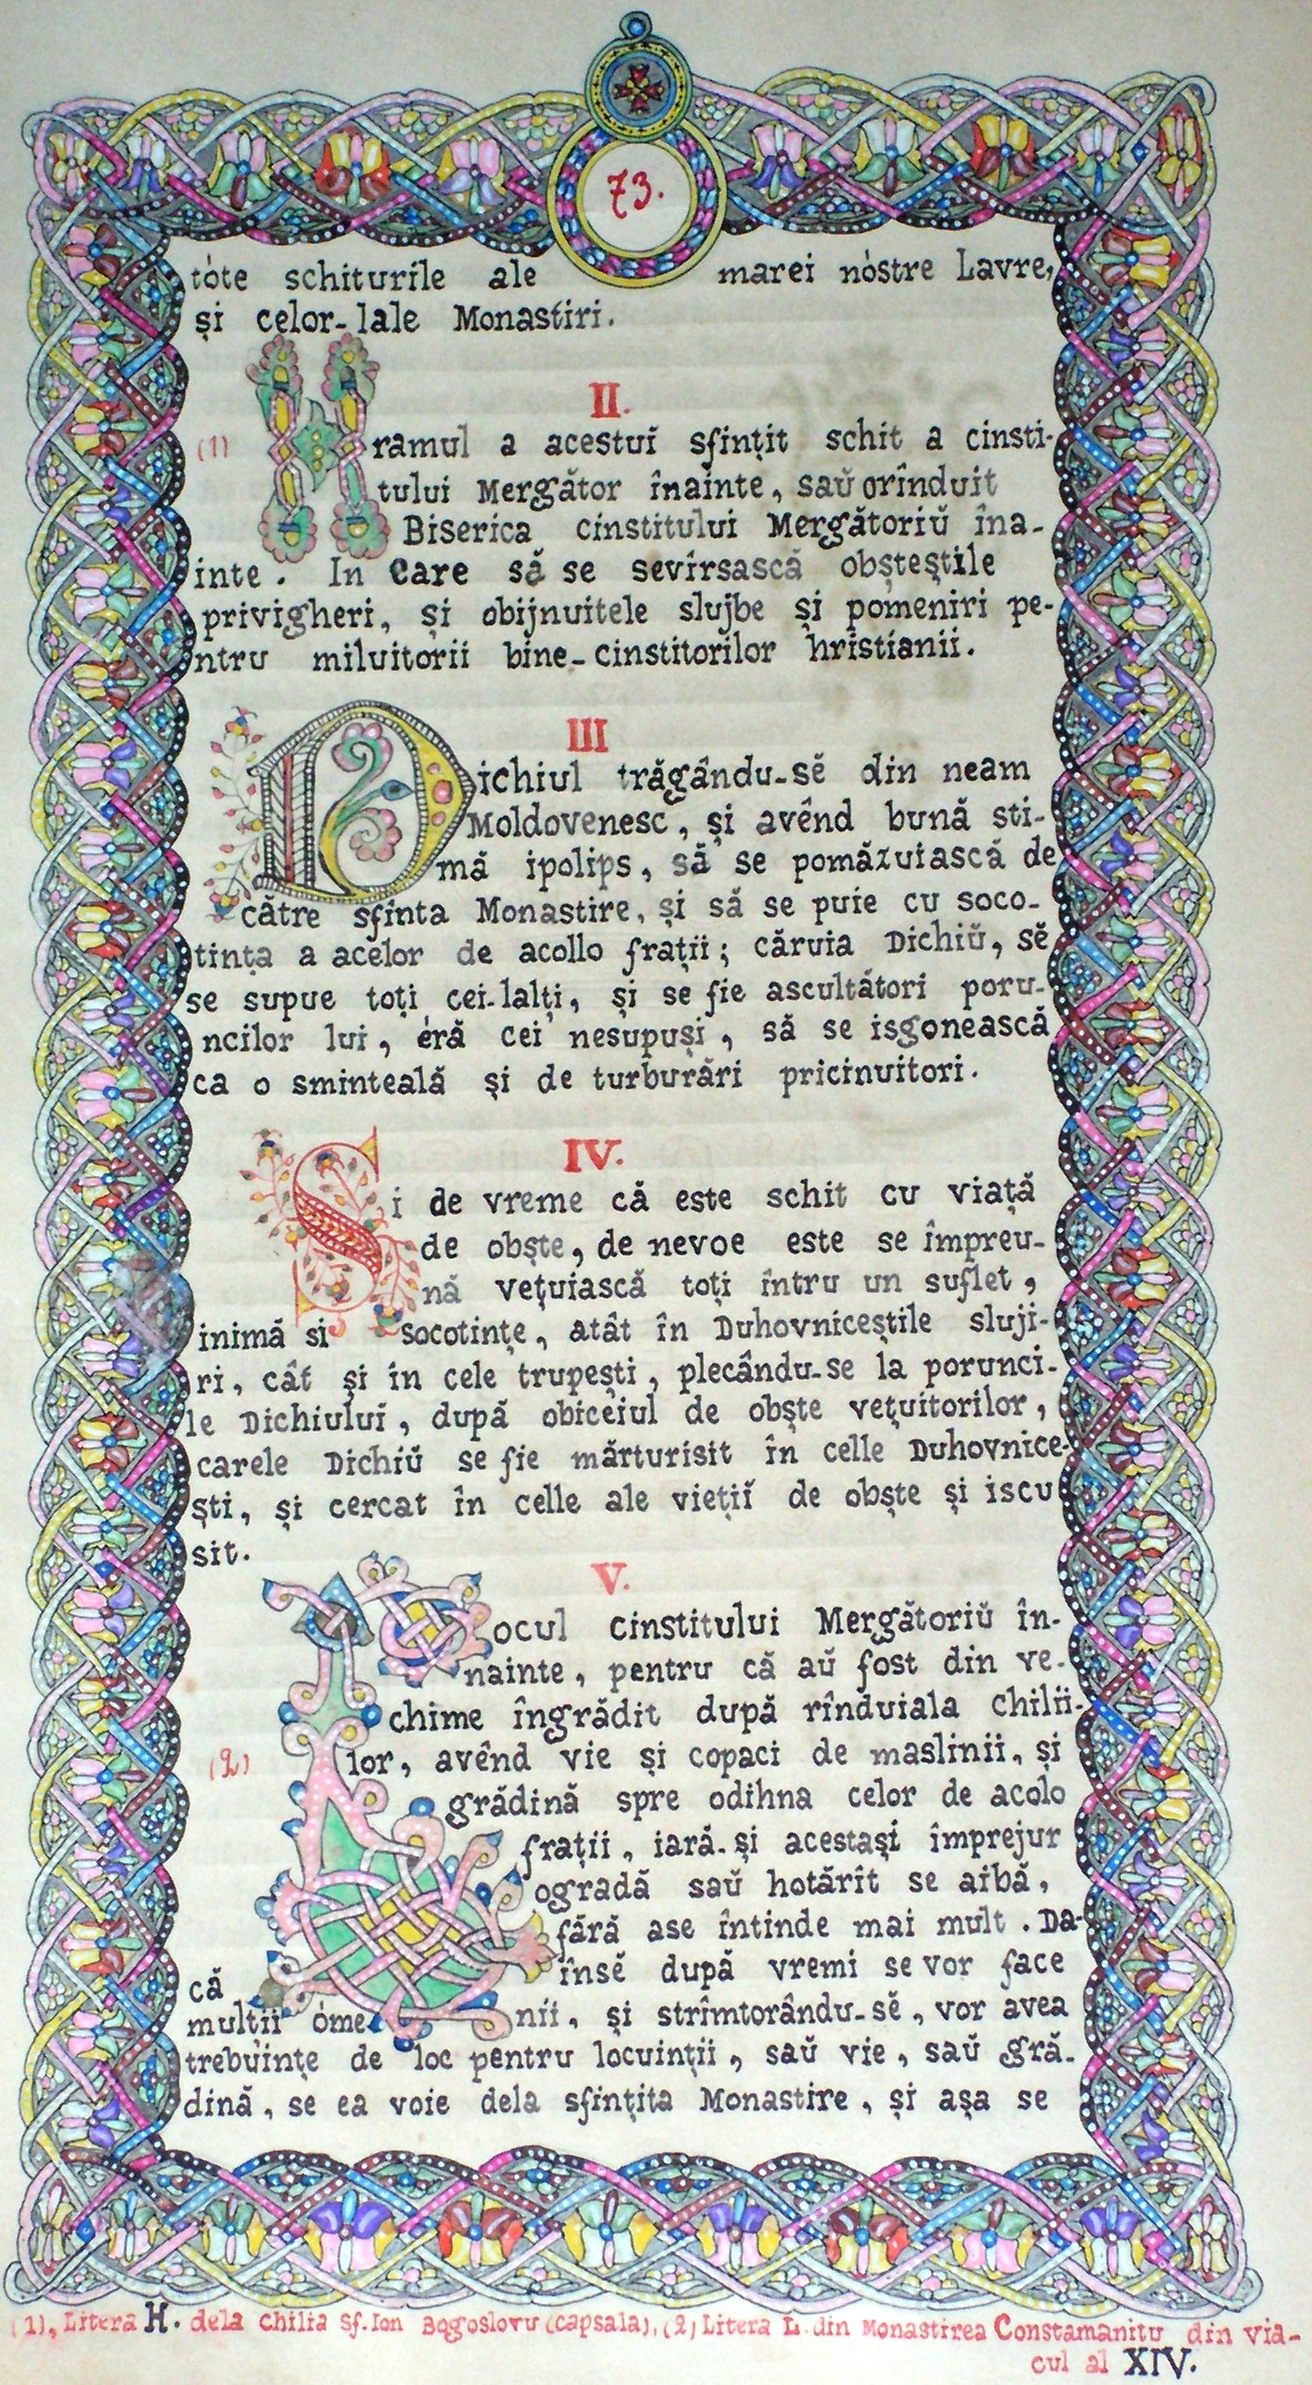 73.
tòte schiturile ale marei nòstre Lavre,
și celor-lale Monastiri.
II.
(1) Hramul a acestuĭ sfințit schit a cinsti-
tului Mergător înainte, saŭ orînduit
Biserica cinstitului Mergătoriŭ îna-
inte. In care să se sevîrsască obșteștile
privigheri, și obijnuitele slujbe și pomeniri pe-
ntru miluitorii bine-cinstitorilor hristianii.
III
Dichiul trăgându-sĕ din neam
Moldovenesc, și avênd bună sti-
mă ipolips, să se pomăzuiască de
către sfînta Monastire, și să se puie cu soco-
tința a acelor de acollo frații; căruia Dichiŭ, sĕ
se supue toți cei-lalți, și se fie ascultători poru-
ncilor lui, éră cei nesupuși, să se isgonească
ca o sminteală și de turburări pricinuitori.
IV.
Si de vreme că este schit cu viață
de obște, de nevoe este se împreu-
nă vețuiască toți întru un suflet,
inimă si socotințe, atât în Duhovniceștile sluji-
ri, cât și în cele trupești, plecându-se la porunci-
le Dichiuluĭ, după obiceiul de obște vețuitorilor,
carele Dichiŭ se fie mărturisit în celle Duhovnice-
ști, și cercat în celle ale viețiĭ de obște și iscu
sit.
V.
Locul cinstitului Mergătoriŭ în-
nainte, pentru că aŭ fost din ve-
chime îngrădit după rînduiala chilii-
(2) lor, avênd vie și copaci de maslinii, și
grădină spre odihna celor de acolo
frații, iară-și acestași împrejur
ogradă saŭ hotărît se aibă,
fără ase întinde mai mult. Da-
că însĕ după vremi se vor face
multii òmenii, și strîmtorându-sĕ, vor avea
trebuințe de loc pentru locuinții, saŭ vie, saŭ gră-
dină, se ea voie dela sfințita Monastire, și așa se
(1), Litera H. dela chilia sf. Ion Bogoslovu (capsala), (2) Litera L. din Monastirea Constamanitu din via-
cul al XIV.